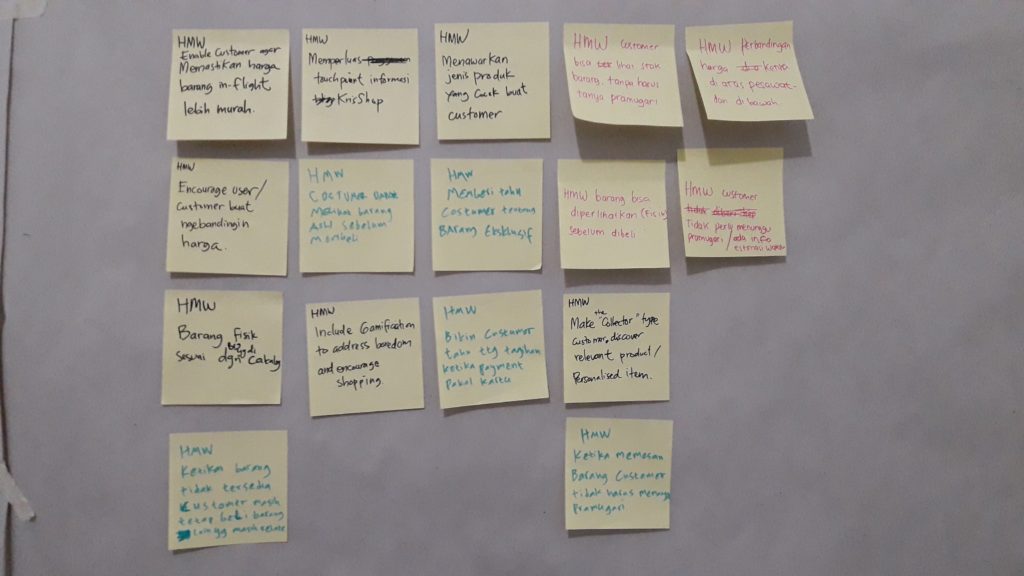 HMW
Enable Customer agar
Memastikan harga
barang in-flight
lebih murah.
HMW
Memperluas
touchpoint informasi
KrisShop
HMW
Menawarkan
jenis produk
yang cocok buat
customer
HMW customer
bisa lihat stok
barang, tanpa harus
tanya pramugari
HMW Perbandingan
harga ketika
di atas pesawat
dan di bawah
HMW
Encourage user/
Customer buat
ngebandingin
harga.
HMW
COSTUMER DAPAT
Melihat barang
Asli sebelum
Membeli
HMW
Memberi tahu
Costumer tentang
BARang Eksklusif
HMW barang bisa
diperlihatkan (fisik)
sebelum dibeli
HMW customer
tidak perlu menunggu
pramugari / ada info
estimasi waktu
HMW
Barang fisik
sesuai dgn yg di
Catalog
HMW
Include Gamification
to address boredom
and encourage
shopping.
HMW
Bikin Costumer
tahu ttg tagihan
ketika payment
Pakai Kartu
HMW
Make the "Collector" type
customer discover
relevant product/
Personalised item.
HMW
Ketika barang
tidak tersedia
Customer masih
tetap beli barang
yg masih
HMW
Ketika memesan
Barang Customer
tidak harus
Pramugari